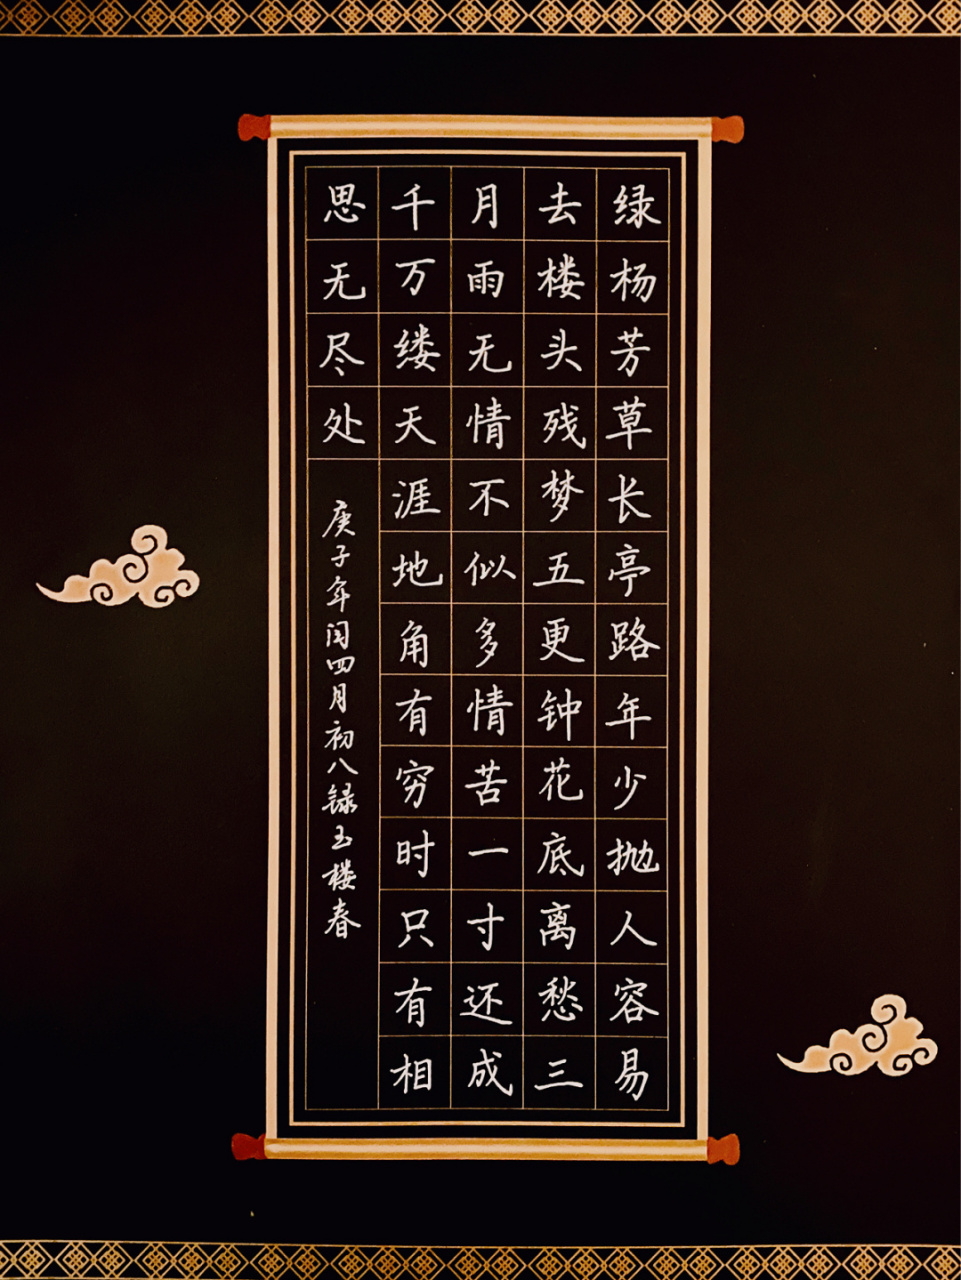 绿杨芳草长亭路年少抛人容易
去楼头残梦五更钟花底离愁三
月雨无情不似多情苦一寸还成
千万缕天涯地角有穷时只有相
思无尽处
庚子年闰四月初八录玉楼春